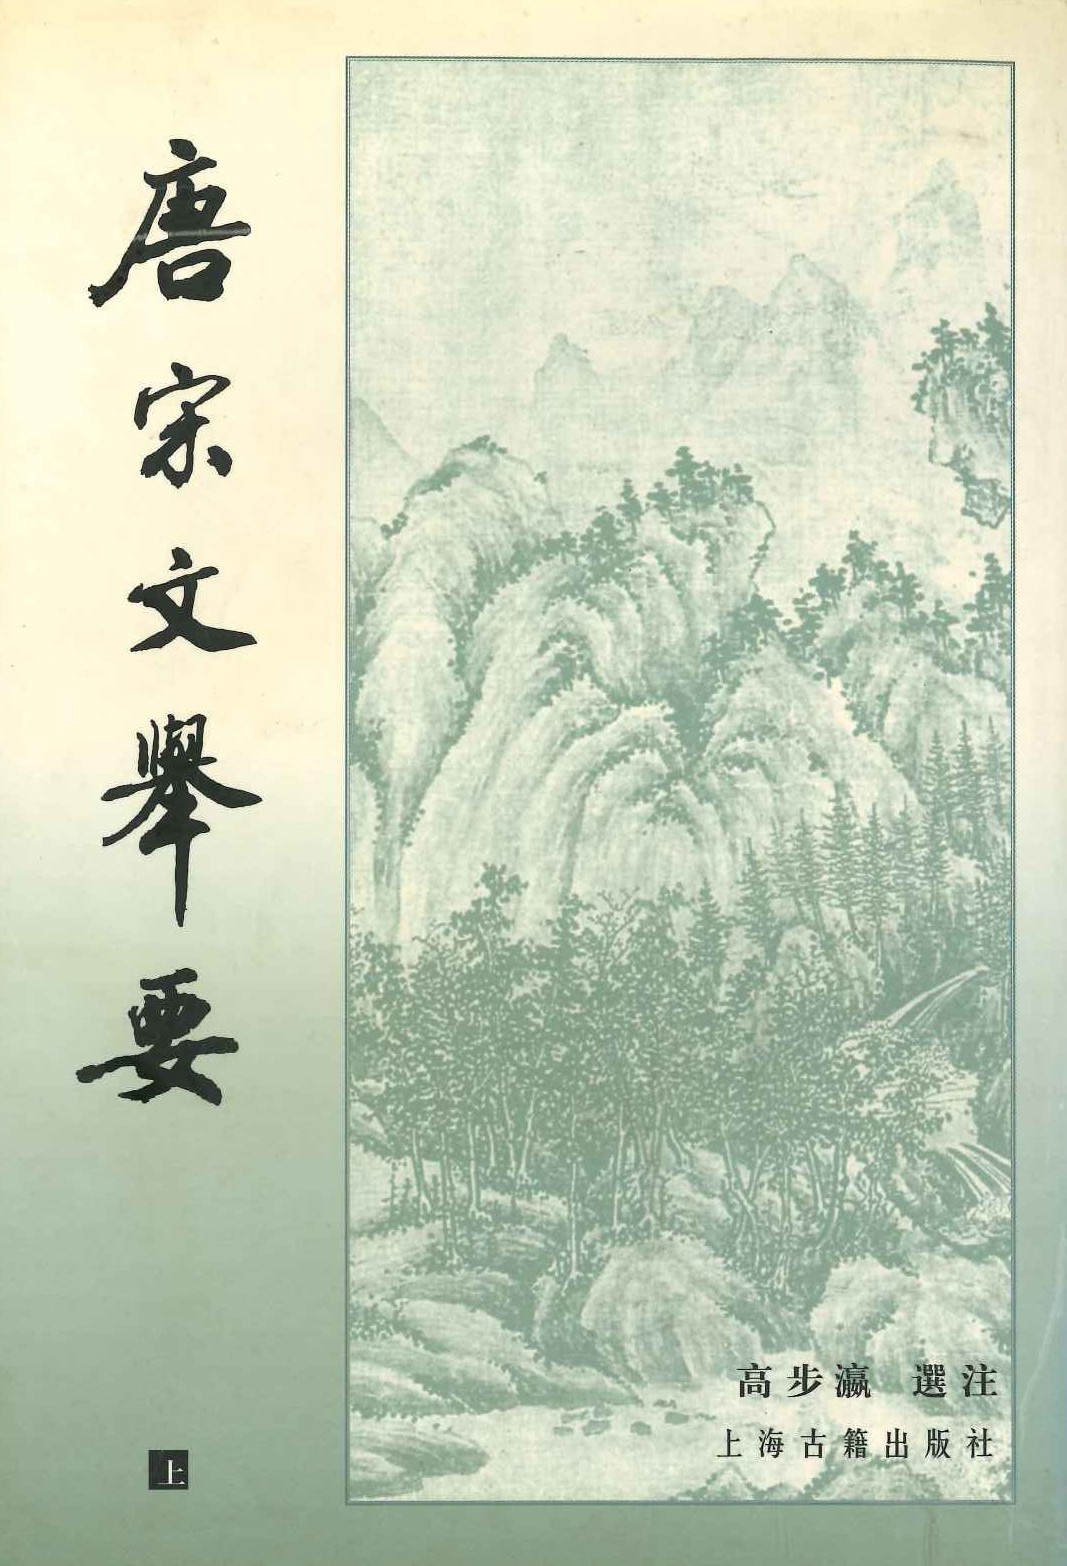 唐宋文舉要
上
高步瀛 選注
上海古籍出版社